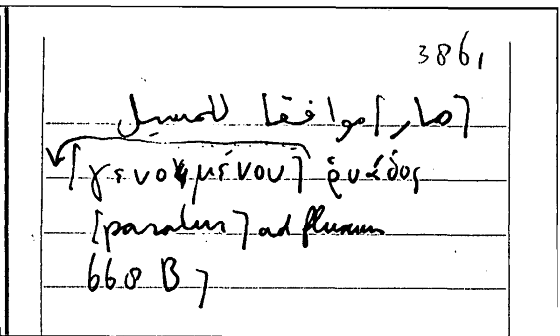 386,
[صار] موافقا للمسيل
[γενομένου] ῥυάδος
[paratur] ad fluxum
668 B 7